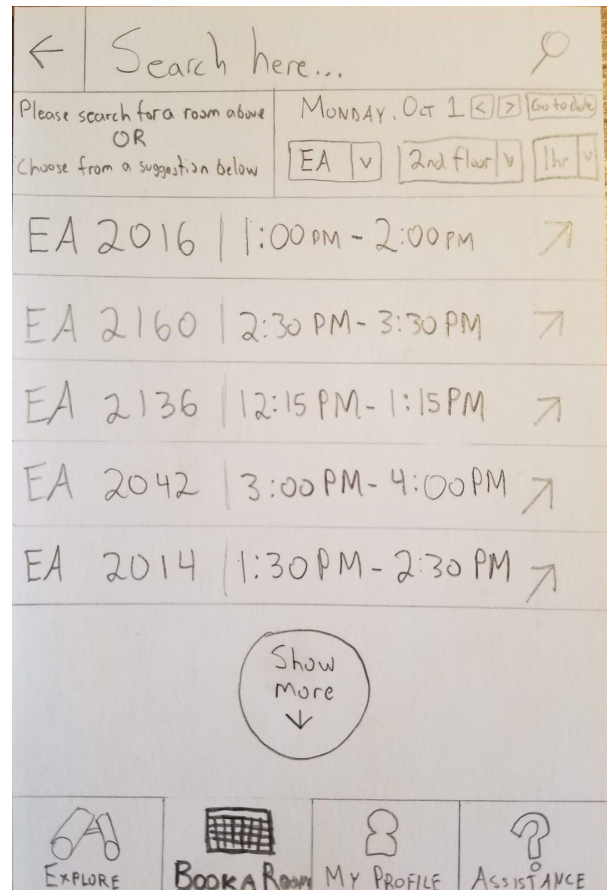 ← Search here...
Please search for a room above
OR
Choose from a suggestion below
MONDAY, OCT 1 < > Go to date
EA v 2nd floor v 1hr v
EA 2016 | 1:00 PM - 2:00 PM ↗
EA 2160 | 2:30 PM - 3:30 PM ↗
EA 2136 | 12:15 PM - 1:15 PM ↗
EA 2042 | 3:00 PM - 4:00 PM ↗
EA 2014 | 1:30 PM - 2:30 PM ↗
Show
More
↓
EXPLORE BOOK A ROOM MY PROFILE ASSISTANCE